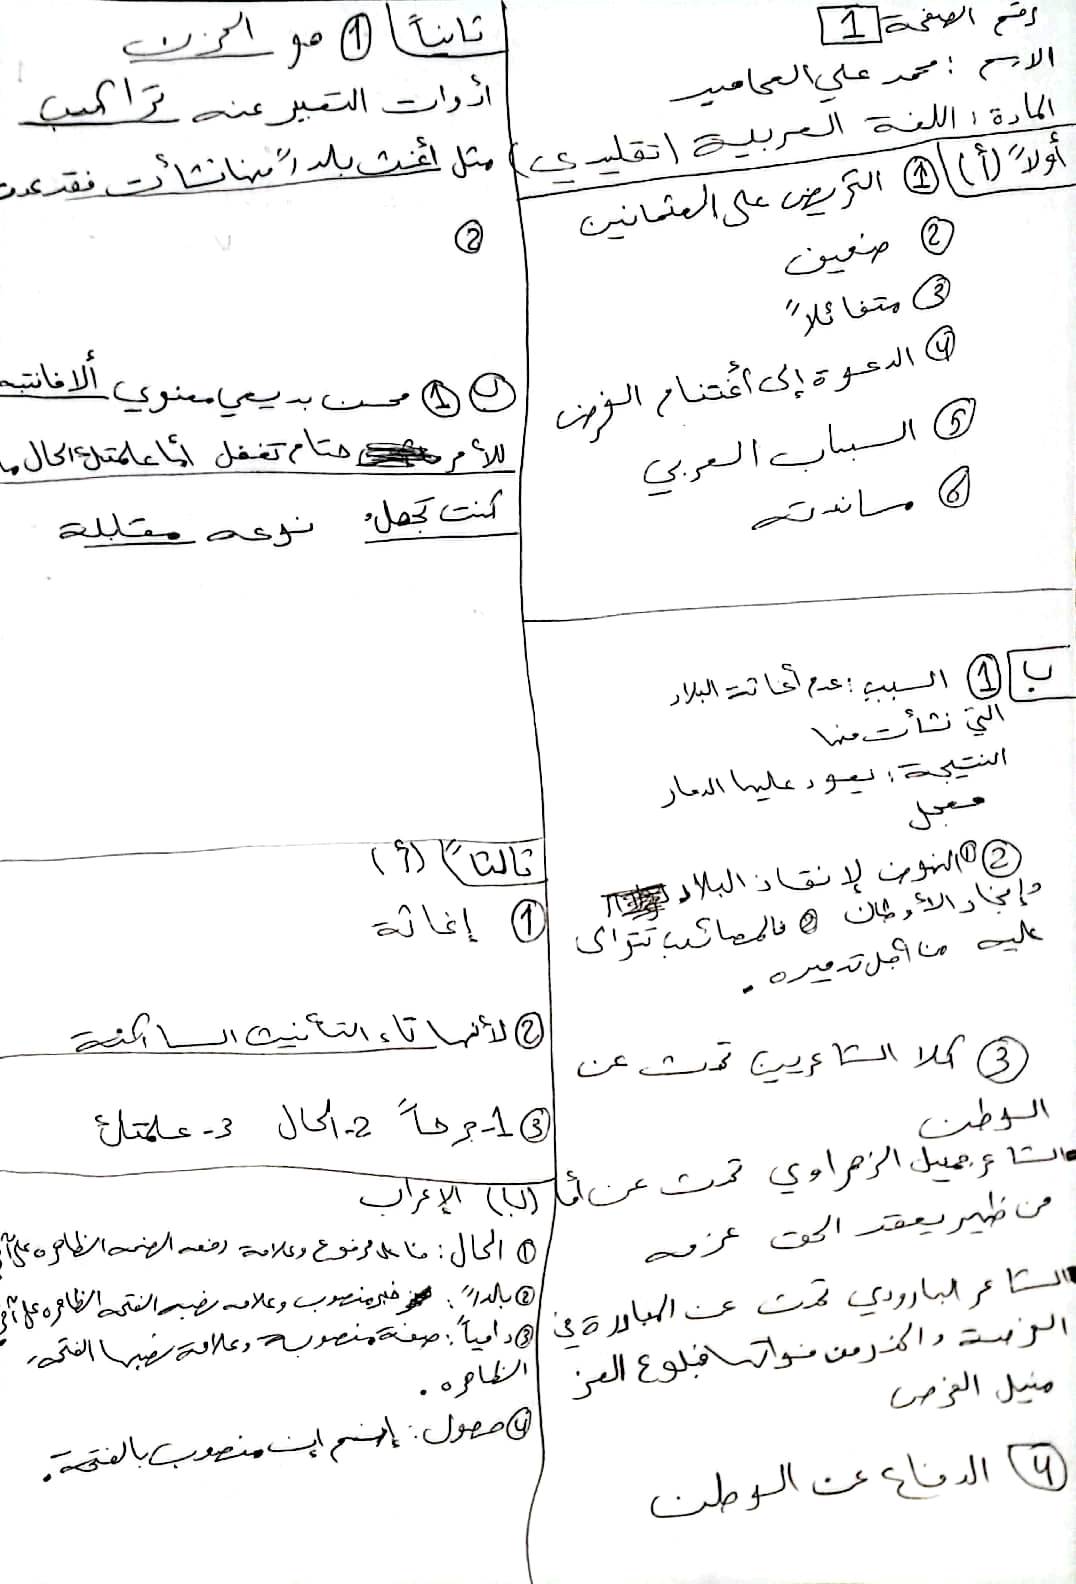 رقم الصفحة 1
الاسم : محمد علي المحاميد
المادة : اللغة العربية (تقليدي)
أولاً (أ) 1 التحريض على العثمانين
2 ضعيف
3 متفائلاً
4 الدعوة إلى أغتنام الفرص
5 السباب العربي
6 مساندته
ب 1 السبب : عدم أغاثة البلاد
التي نشأت منها
النتيجة : يعود عليها الدمار
معجل
2 1 النهوض لإنقاذ البلاد
وإنجاد الأوطان 2 فالمصائب تترای
عليه من أجل تدميره .
3 كلا الشاعريين تحدث عن
الوطن
الشاعر جميل الزهراوي تحدث عن أما
من ظهير يعقد الحق عزمه
الشاعر البارودي تحدث عن المبادرة في
الفرصة والحذر من فواتها فبلوغ العز
منيل الفرص
4 الدفاع عن الوطن
ثانياً 1 هو الحزن
أدوات التعبير عنه تراكيب
مثل أغث بلداً منها نشأت فقد عدت
2
ب 1 محسن بديعي معنوي ألا فانتبه
للأمر حتام تغفل أما علمتك الحال ما
كنت تجهل نوعه مقابلة
ثالثاً (أ)
1 إغاثة
2 لأنها تاء التأنيث الساكنة
3 1- جرحاً 2- الحال 3- علمتك
(ب) الإعراب
1 الحال : فاعل مرفوع وعلامة رفعه الضمه الظاهره على
2 بالداً : خبر منصوب وعلامه نصبه الفتحه الظاهره على
3 دامياً : صفة منصوبة وعلامة نصبها الفتحة
الظاهره .
4 حصول : إسم إن منصوب بالفتحة .